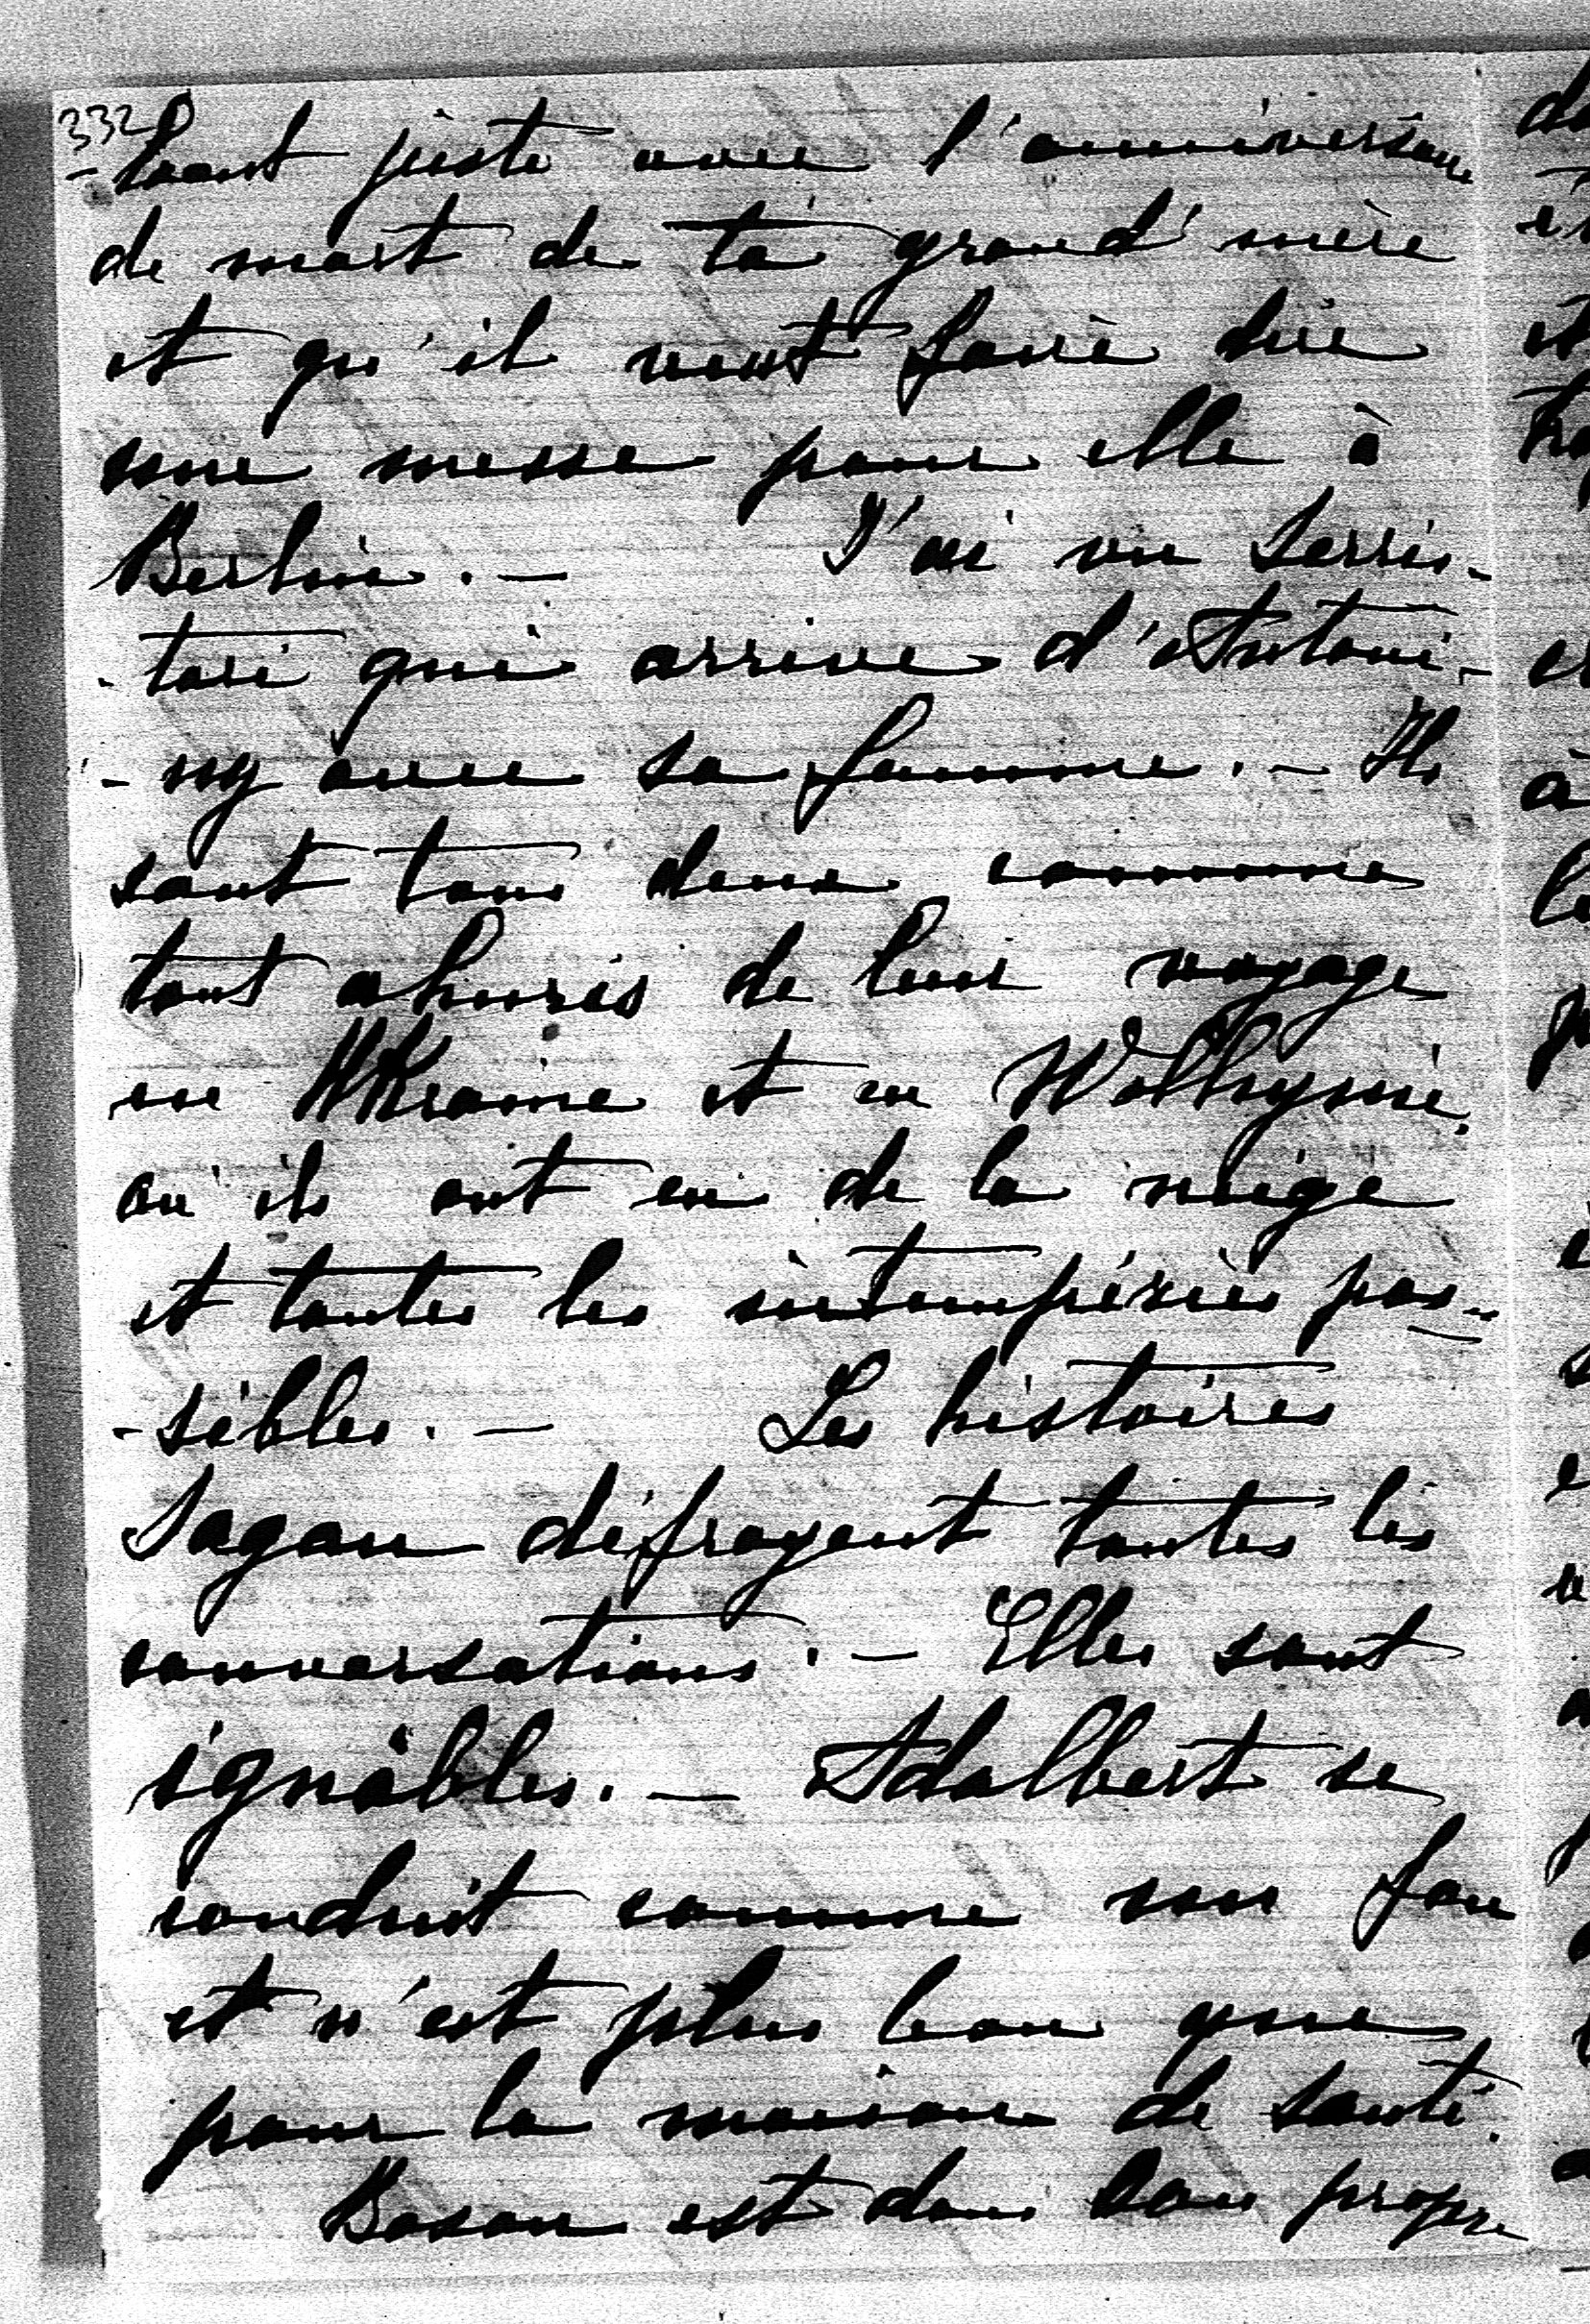 332
-bant juste avec l'anniversaire
de mort de ta grand'mère
et qu'il veut faire dire
une messe pour elle à
Berlin. — J'ai vu Serris-
-tori qui arrive d'Antoni-
-ny avec sa femme. — Ils
sont tous deux comme
tout ahuris de leur voyage
en Ukraine et en Wolhynie.
où ils ont eu de la neige
et toutes les intempéries pos-
-sibles. — Les histoires
Sagan défrayent toutes les
conversations. — Elles sont
ignobles. — Adalbert se
conduit comme un fou
et n'est plus bon que
pour la maison de santé.
Boson est dans son propre